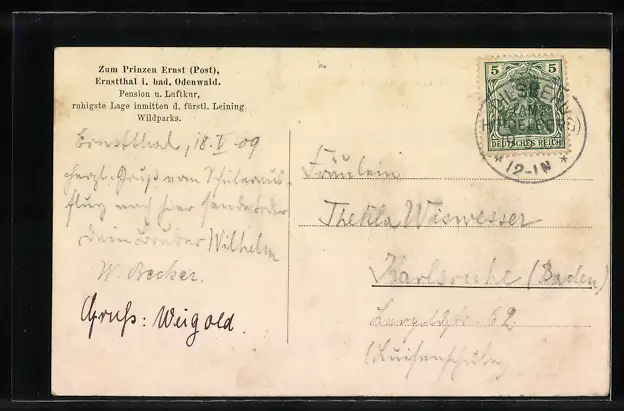 Zum Prinzen Ernst (Post),
Ernstthal i. bad. Odenwald.
Pension u. Luftkur,
ruhigste Lage inmitten d. fürstl. Leining.
Wildparks.
Ernstthal, 18. V. 09
herzl. Gruß vom
flug nach hier sendet
dein Bruder Wilhelm
W. Becker.
Gruß: Weigold.
5 5
DEUTSCHES REICH
12-1N
Fräulein
Thekla Wiswesser
Karlsruhe (Baden)
Leopoldstr. 62
(Luisenschule)